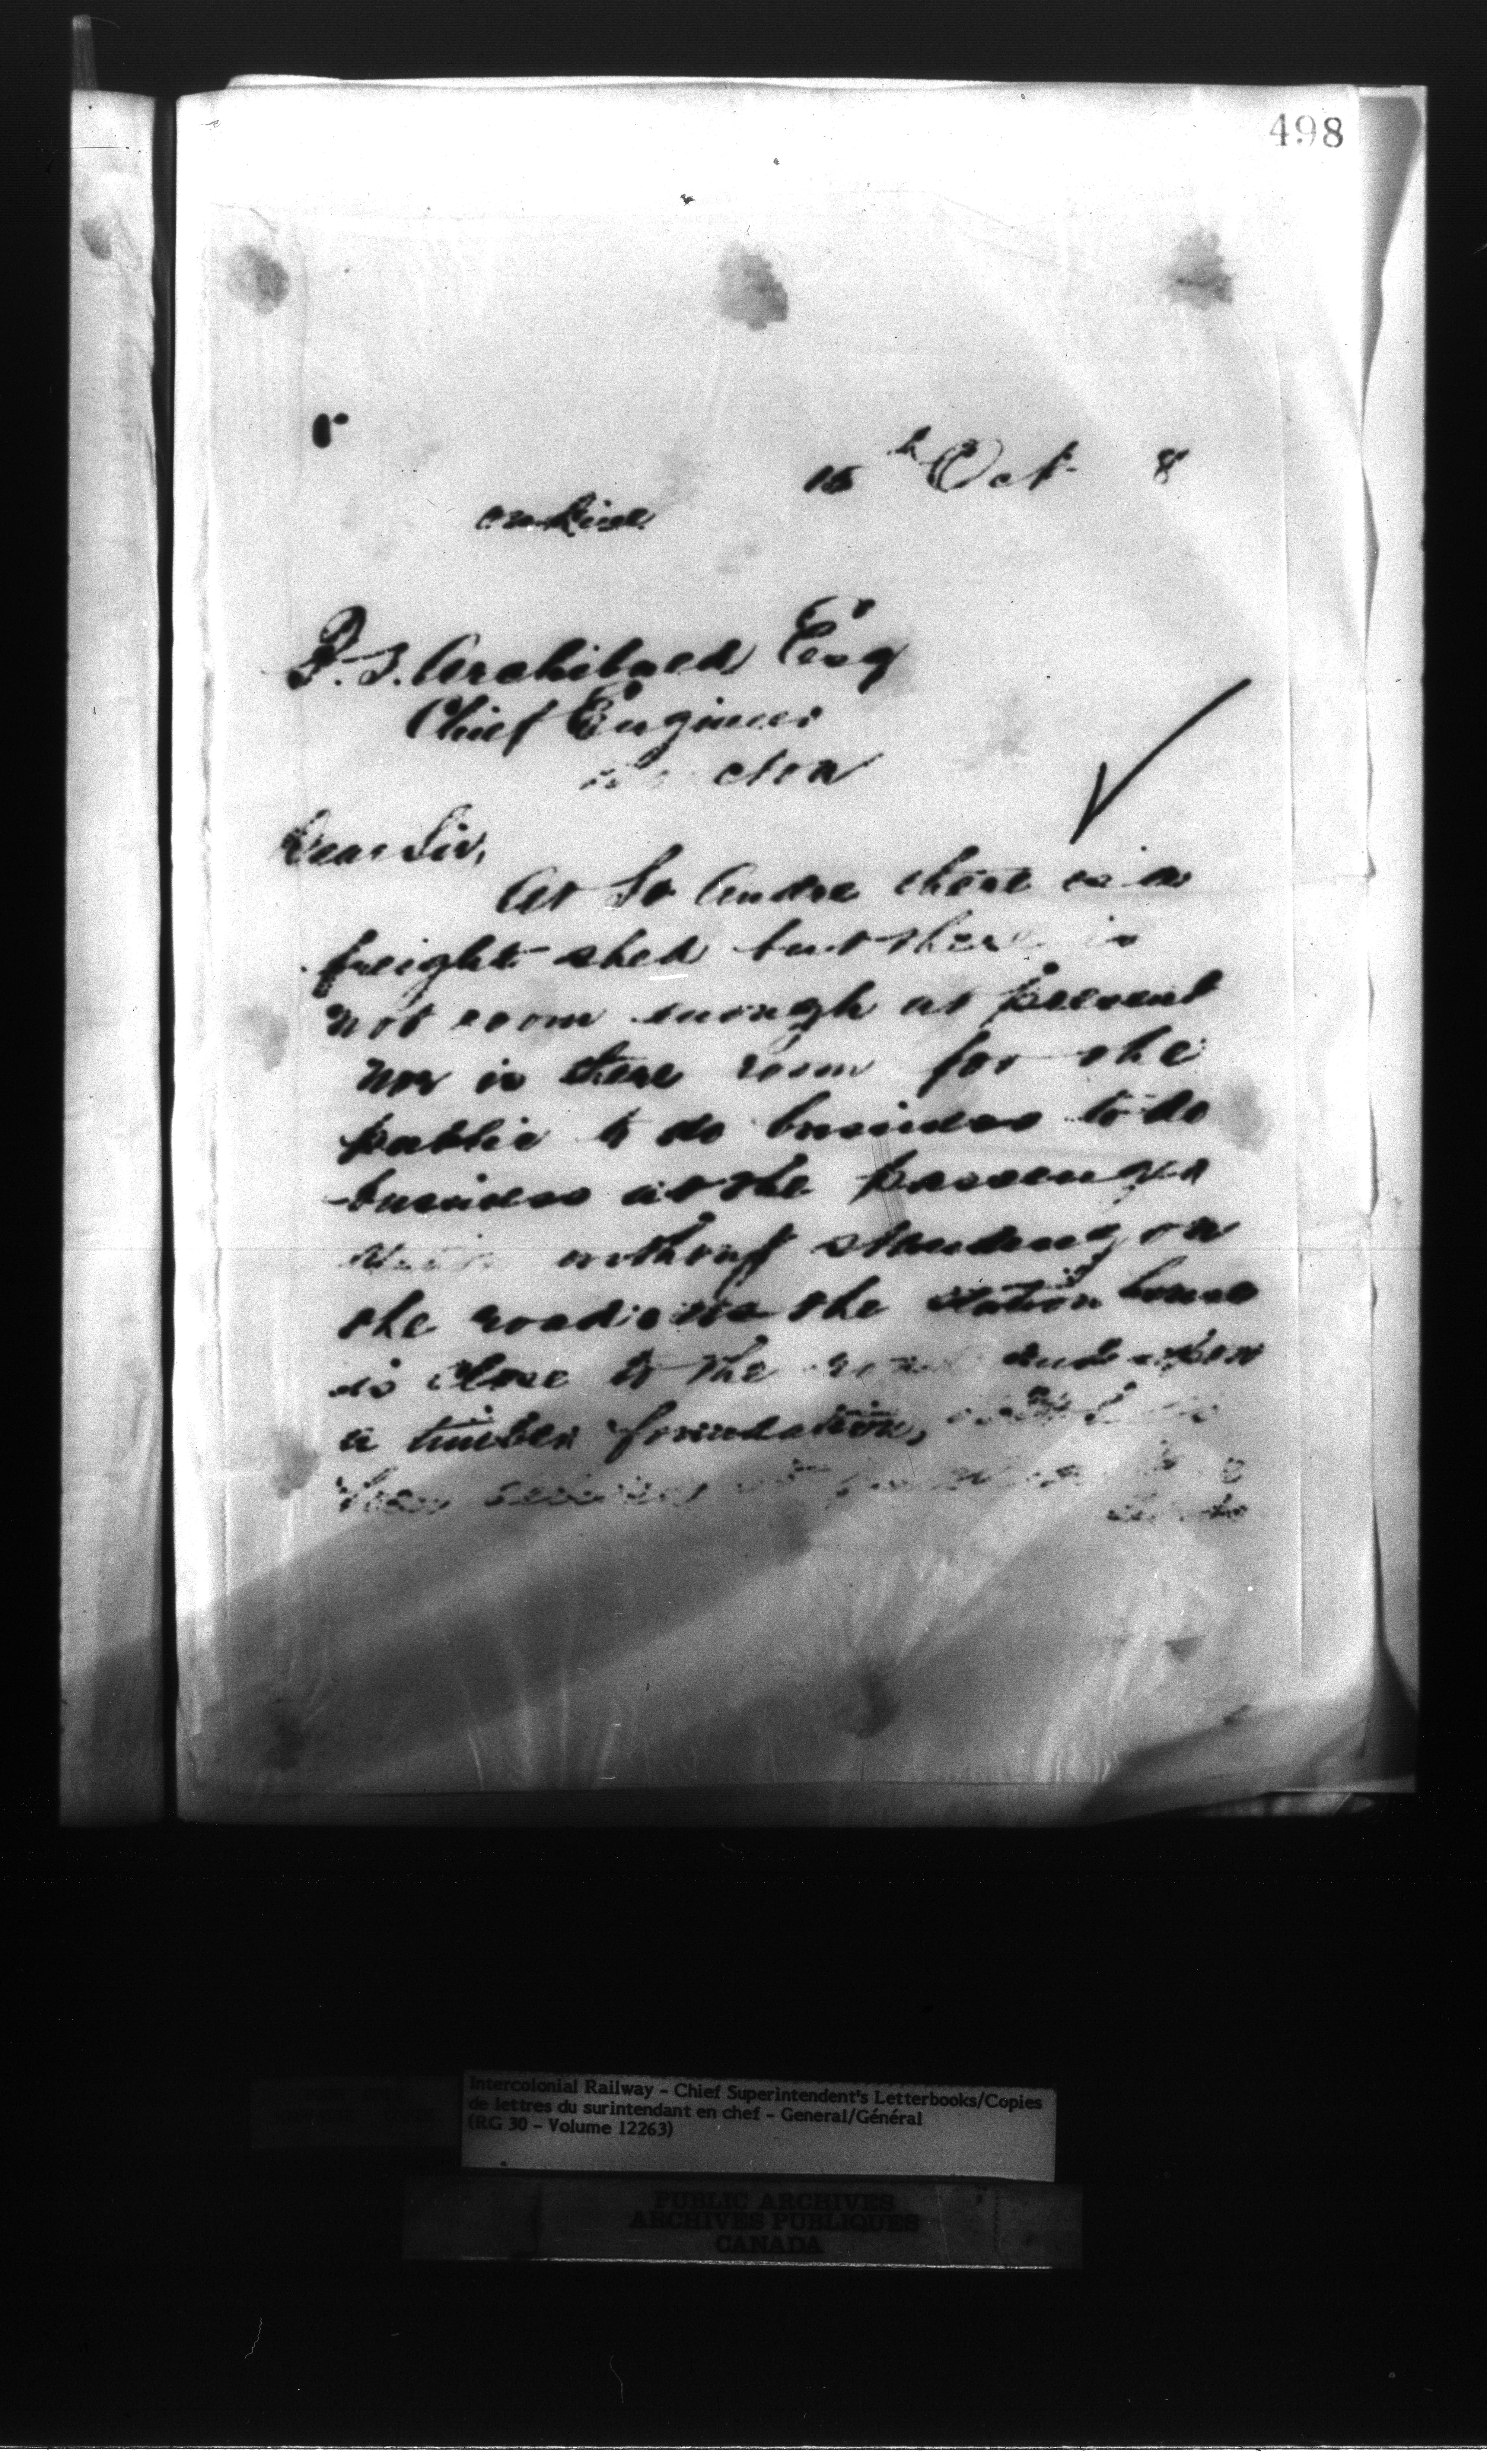 498
15 h Oct 8
P. S. Archibald Esq
Chief Engineer
cton
Dear Sir,
At St Andre there is a
freight shed but there is
not room enough at present
nor is there room for the
public to do business to do
business at the passenger
without standing on
the road as the station house
is close to the road and upon
a timber foundation,
Intercolonial Railway - Chief Superintendent's Letterbooks/Copies
de lettres du surintendant en chef - General/Général
(RG 30 - Volume 12263)
PUBLIC ARCHIVES
ARCHIVES PUBLIQUES
CANADA